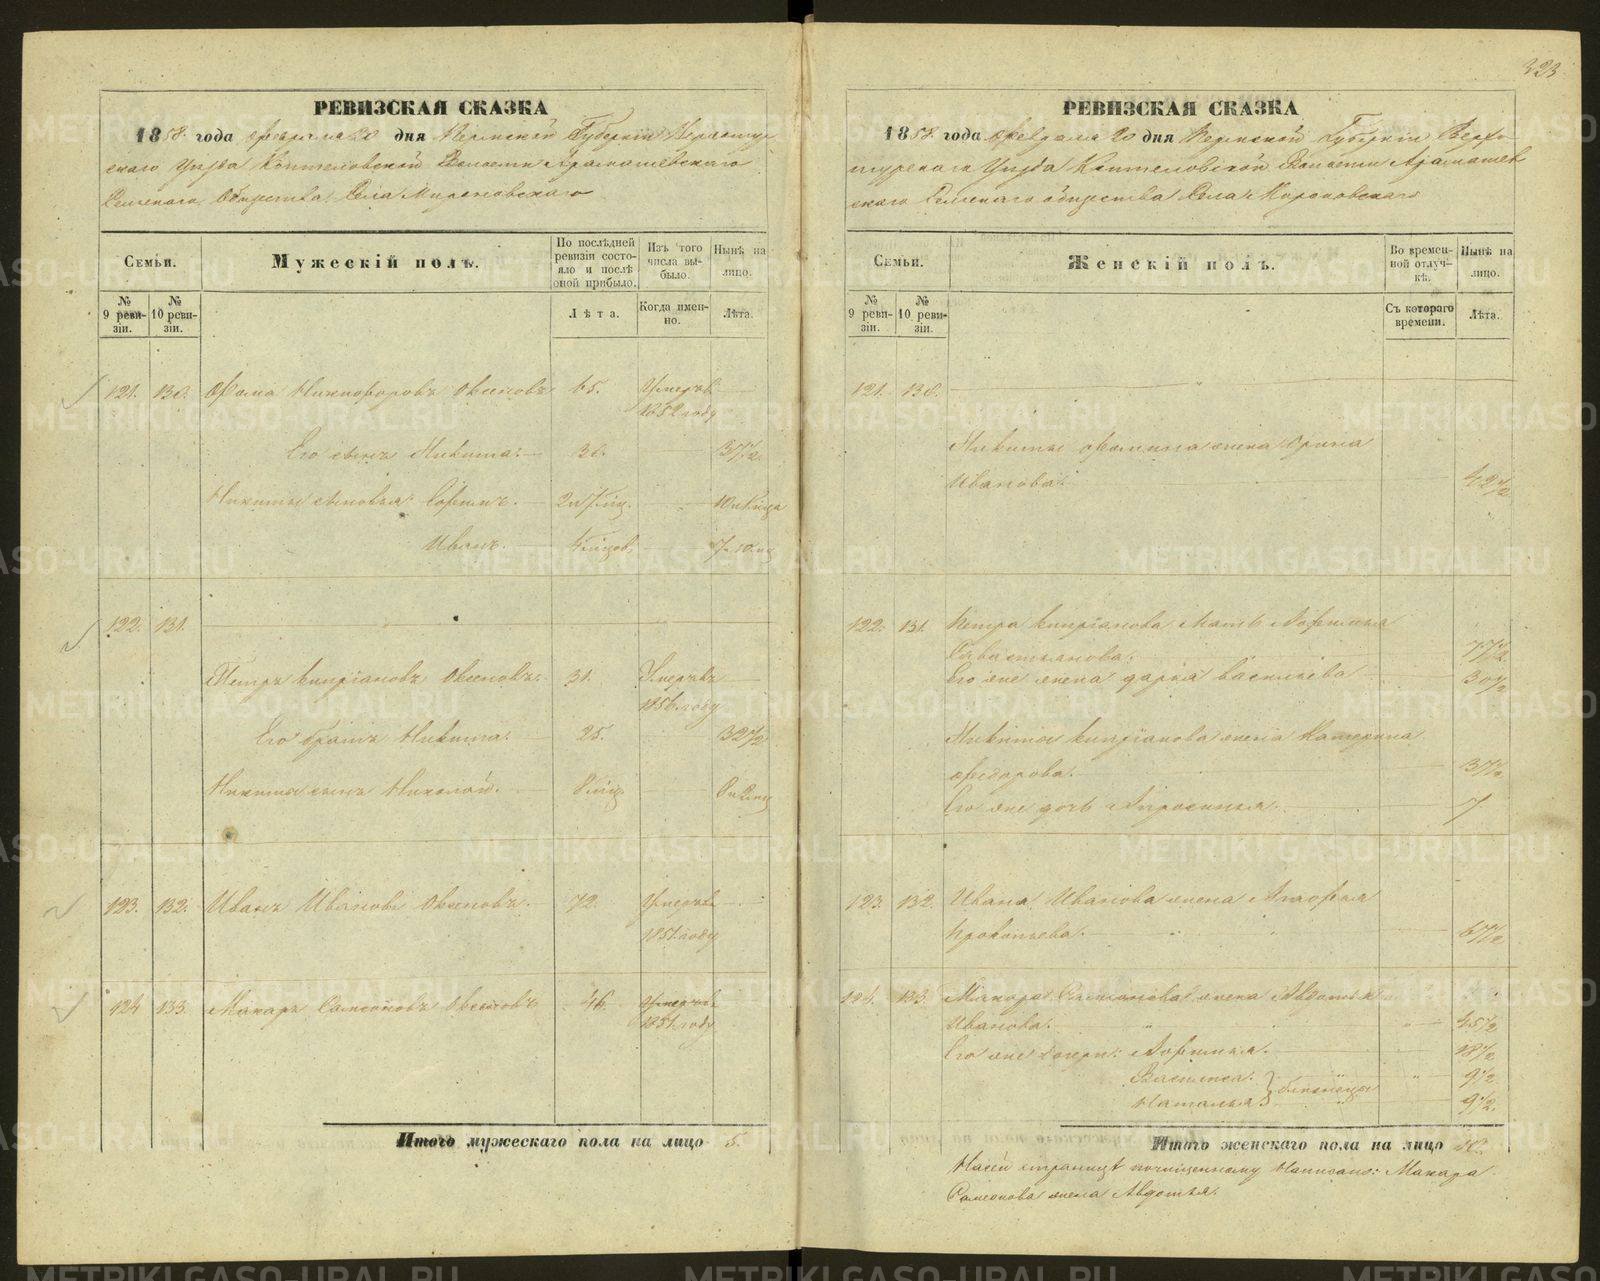 323
РЕВИЗСКАЯ СКАЗКА
1858. года февраля 20 дня Пермской Губернии Верхотур
скаго Уѣзда Коптеловской Волости Арамашевскаго
Сельскаго Общества Села Мироновскаго
Семьи.
Мужескій полъ.
По послѣдней ревизіи состояло и послѣ оной прибыло.
Изъ того числа выбыло.
Нынѣ на лицо.
№ 9 ревизіи.
№ 10 ревизіи.
Лѣта.
Когда именно.
Лѣта.
121. 130. Фома Никифоровъ Овсяновъ 65. Умеръ въ
1852 году
Его сынъ Никита. 30. 37½.
Никиты сыновья: 2 и 7 мѣц.
Иванъ.
122. 131.
Петръ Кипріановъ 31. Умеръ въ
1856. году
Его братъ Никита. 25. 32½
Никиты сынъ Николай. 8 мѣц
123. 132. Иванъ Ивановъ 72. Умеръ въ
1851. году
124 133. Макаръ Самсоновъ 46. Умеръ въ
1851. году
Итого мужескаго пола на лицо 5.
РЕВИЗСКАЯ СКАЗКА
1858. года февраля 20 дня Пермской Губерніи Верхо
турскаго Уѣзда Коптеловской Волости Арамашев
скаго Сельскаго общества Села Мироновскаго
Семьи.
Женскій полъ.
Во временной отлучкѣ.
Нынѣ на лицо.
№ 9 ревизіи.
№ 10 ревизіи.
Съ котораго времени.
Лѣта.
121. 130.
Никиты Фомина жена Орина
Иванова. 42½
122. 131. Петра Кипріанова Мать
Савастьянова. 77½
Его же жена Дарья Васильева 30½
Никиты Кипріанова жена Катерина
Федорова. 37½
Его же дочь Апросинья. 7.
123. 132. Ивана Иванова жена Агафья
Прокопьева. 67½
124. 133. Макара Самсонова жена Авдотья
Иванова. 45½
Его же дочери: 18½
Василиса. 9½
Наталья близнецы 9½.
Итого женскаго пола на лицо
На сей страницѣ почищенному написано: Макара
Самсонова жена Авдотья.
METRIKI.GASO-URAL.RU